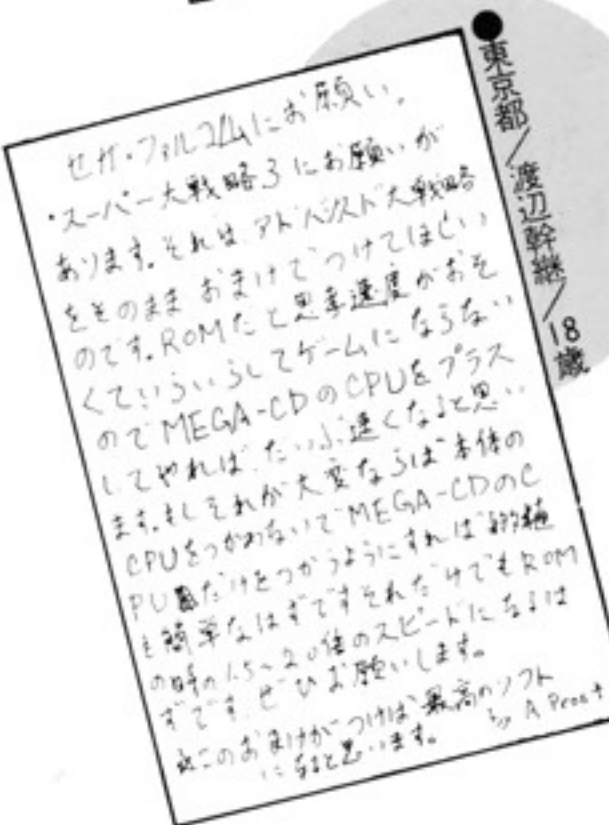 ●東京都/渡辺幹継/18歳
セガ・ファルコムにお願い。
・スーパー大戦略3にお願いが
あります。それは、アドバンスド大戦略
をそのままおまけでつけてほしい
のです。ROMだと思考速度がおそ
くていらいらしてゲームにならない
のでMEGA-CDのCPUをプラス
してやれば、だいぶ速くなると思い
ます。もしそれが大変ならば本体の
CPUをつかわないでMEGA-CDのC
PUだけをつかうようにすれば移植
も簡単なはずですそれだけでもROM
の時の1.5~2.0倍のスピードになるは
ずです。ぜひお願いします。
このおまけがつけば最高のソフト
になると思います。